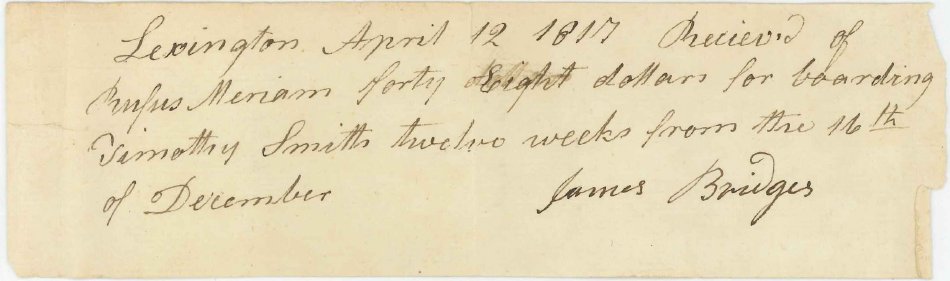 Lexington April 12 1817 Reciev'd of
Rufus Meriam forty Eight dollars for boarding
Timothy Smith twelve weeks from the 16th
of December James Bridges